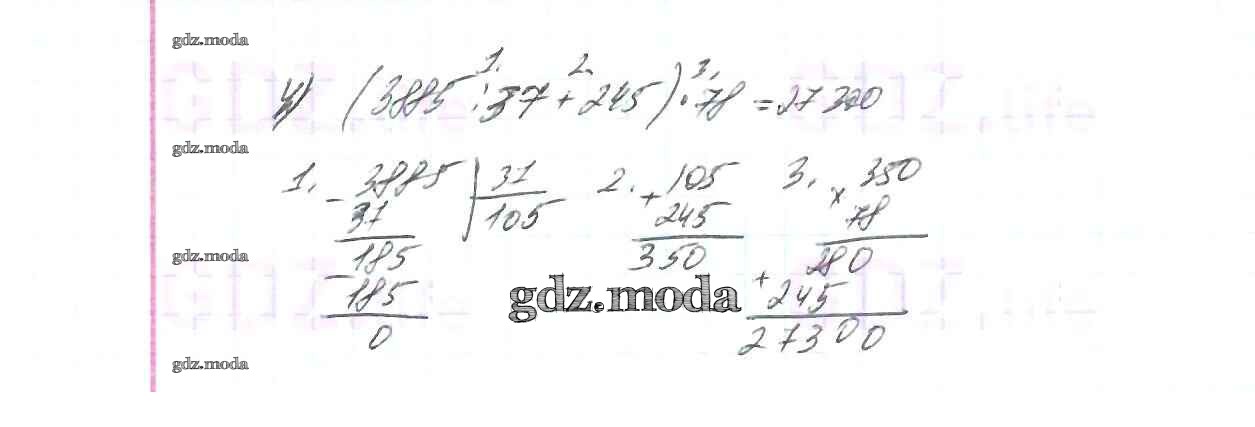 gdz.moda
1. 2. 3.
4) (3885 : 37 + 245) · 78 = 27300
gdz.moda
1. - 3885 | 37 2. + 105 3. × 350
37 105 245 78
185 350 280
gdz.moda
- 185 + 245
gdz.moda
0 27300
gdz.moda